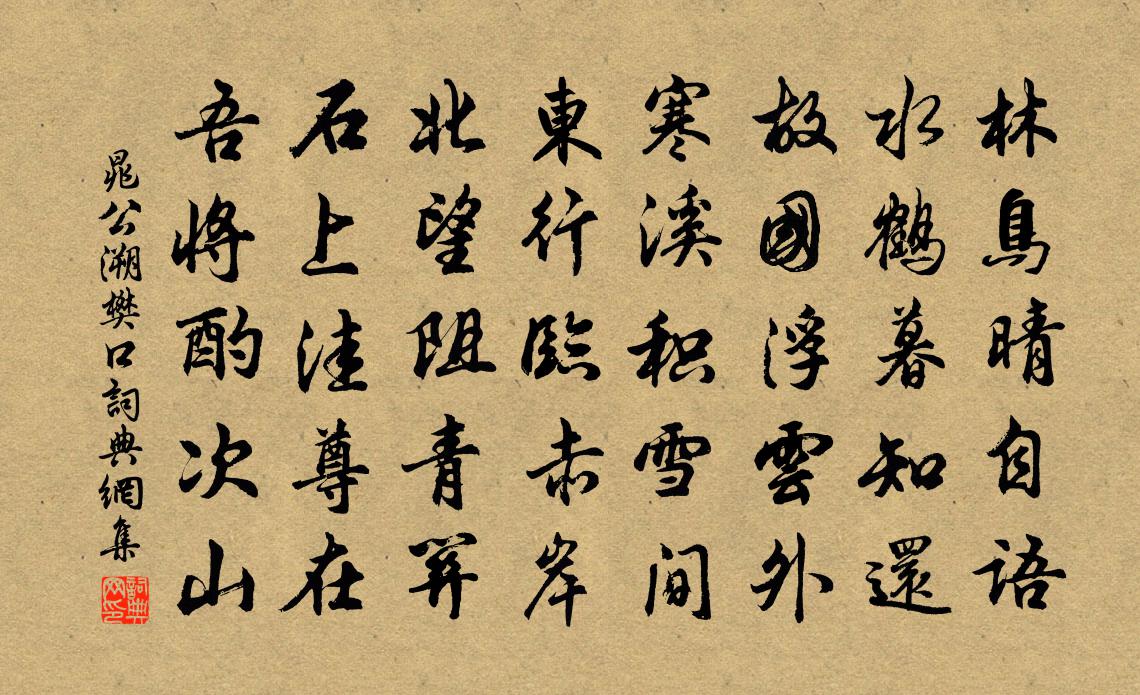 林鳥晴自語
水鶴暮知還
故國浮雲外
寒溪积雪間
東行臨赤岸
北望阻青關
石上洼尊在
吾將酌次山
晁公溯樊口詞典網集
詞典網印